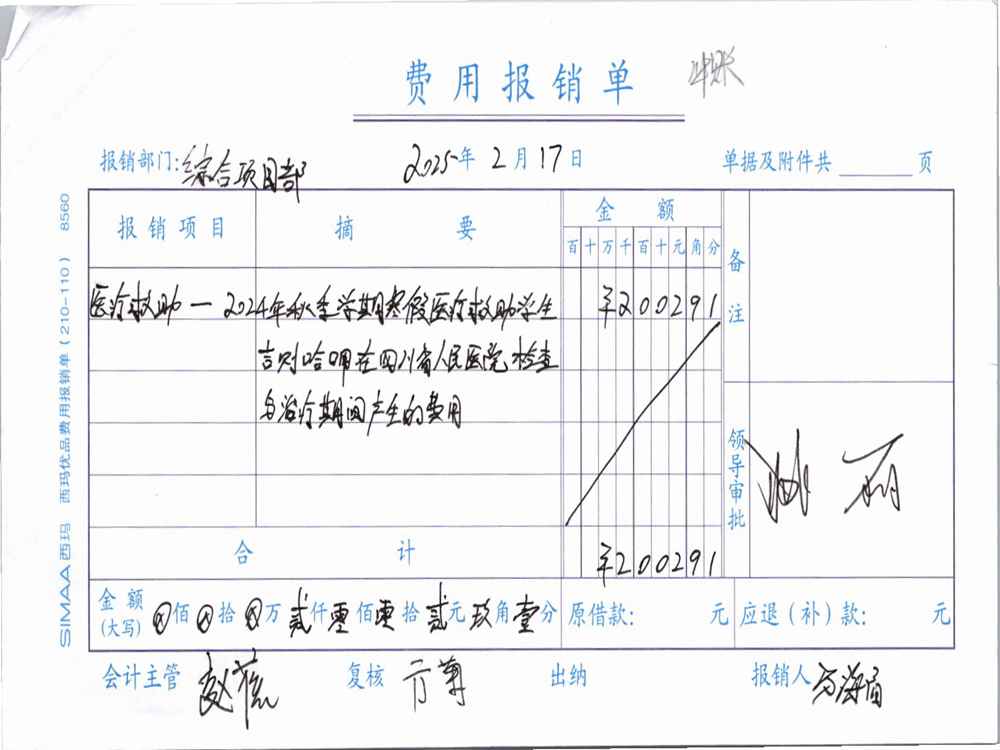 费用报销单 冲账
报销部门:综合项目部 2025年2月17日 单据及附件共 页
报销项目 摘要 金额 备注
百十万千百十元角分
医疗救助 — 2024年秋季学期寒假医疗救助学生 ¥200291
言则哈呷在四川省人民医院检查
与治疗期间产生的费用
领导审批 丽
合计 ¥200291
金额(大写) ⊗佰⊗拾⊗万贰仟零佰零拾贰元玖角壹分 原借款: 元 应退(补)款: 元
会计主管 赵 复核 出纳 报销人
SIMAA西玛 西玛优品费用报销单(210-110) 8560